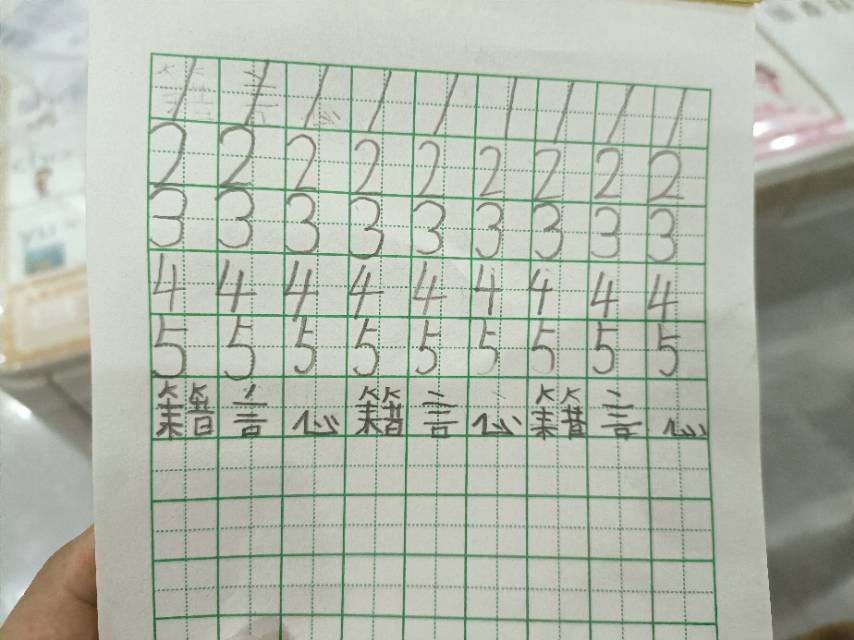 1 1 1 1 1 1 1 1 1
2 2 2 2 2 2 2 2 2
3 3 3 3 3 3 3 3 3
4 4 4 4 4 4 4 4 4
5 5 5 5 5 5 5 5 5
籍 言 心 籍 言 心 籍 言 心